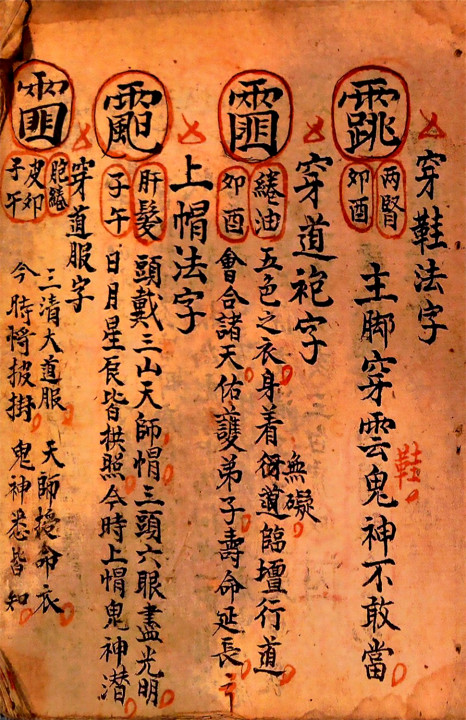 穿鞋法字
两腎
卯酉
主脚穿雲鬼神不敢當
鞋
穿道袍字
綣油
卯酉
五色之衣身着道臨壇行道
無礙
會合諸天佑護弟子壽命延長
上帽法字
肝髮
子午
頭戴三山天師帽三頭六眼盡光明
日月星辰皆拱照今時上帽鬼神潛
穿道服字
胞綣
皮卯
子午
三清大道服 天師授命衣
今時將披掛 鬼神悉皆知